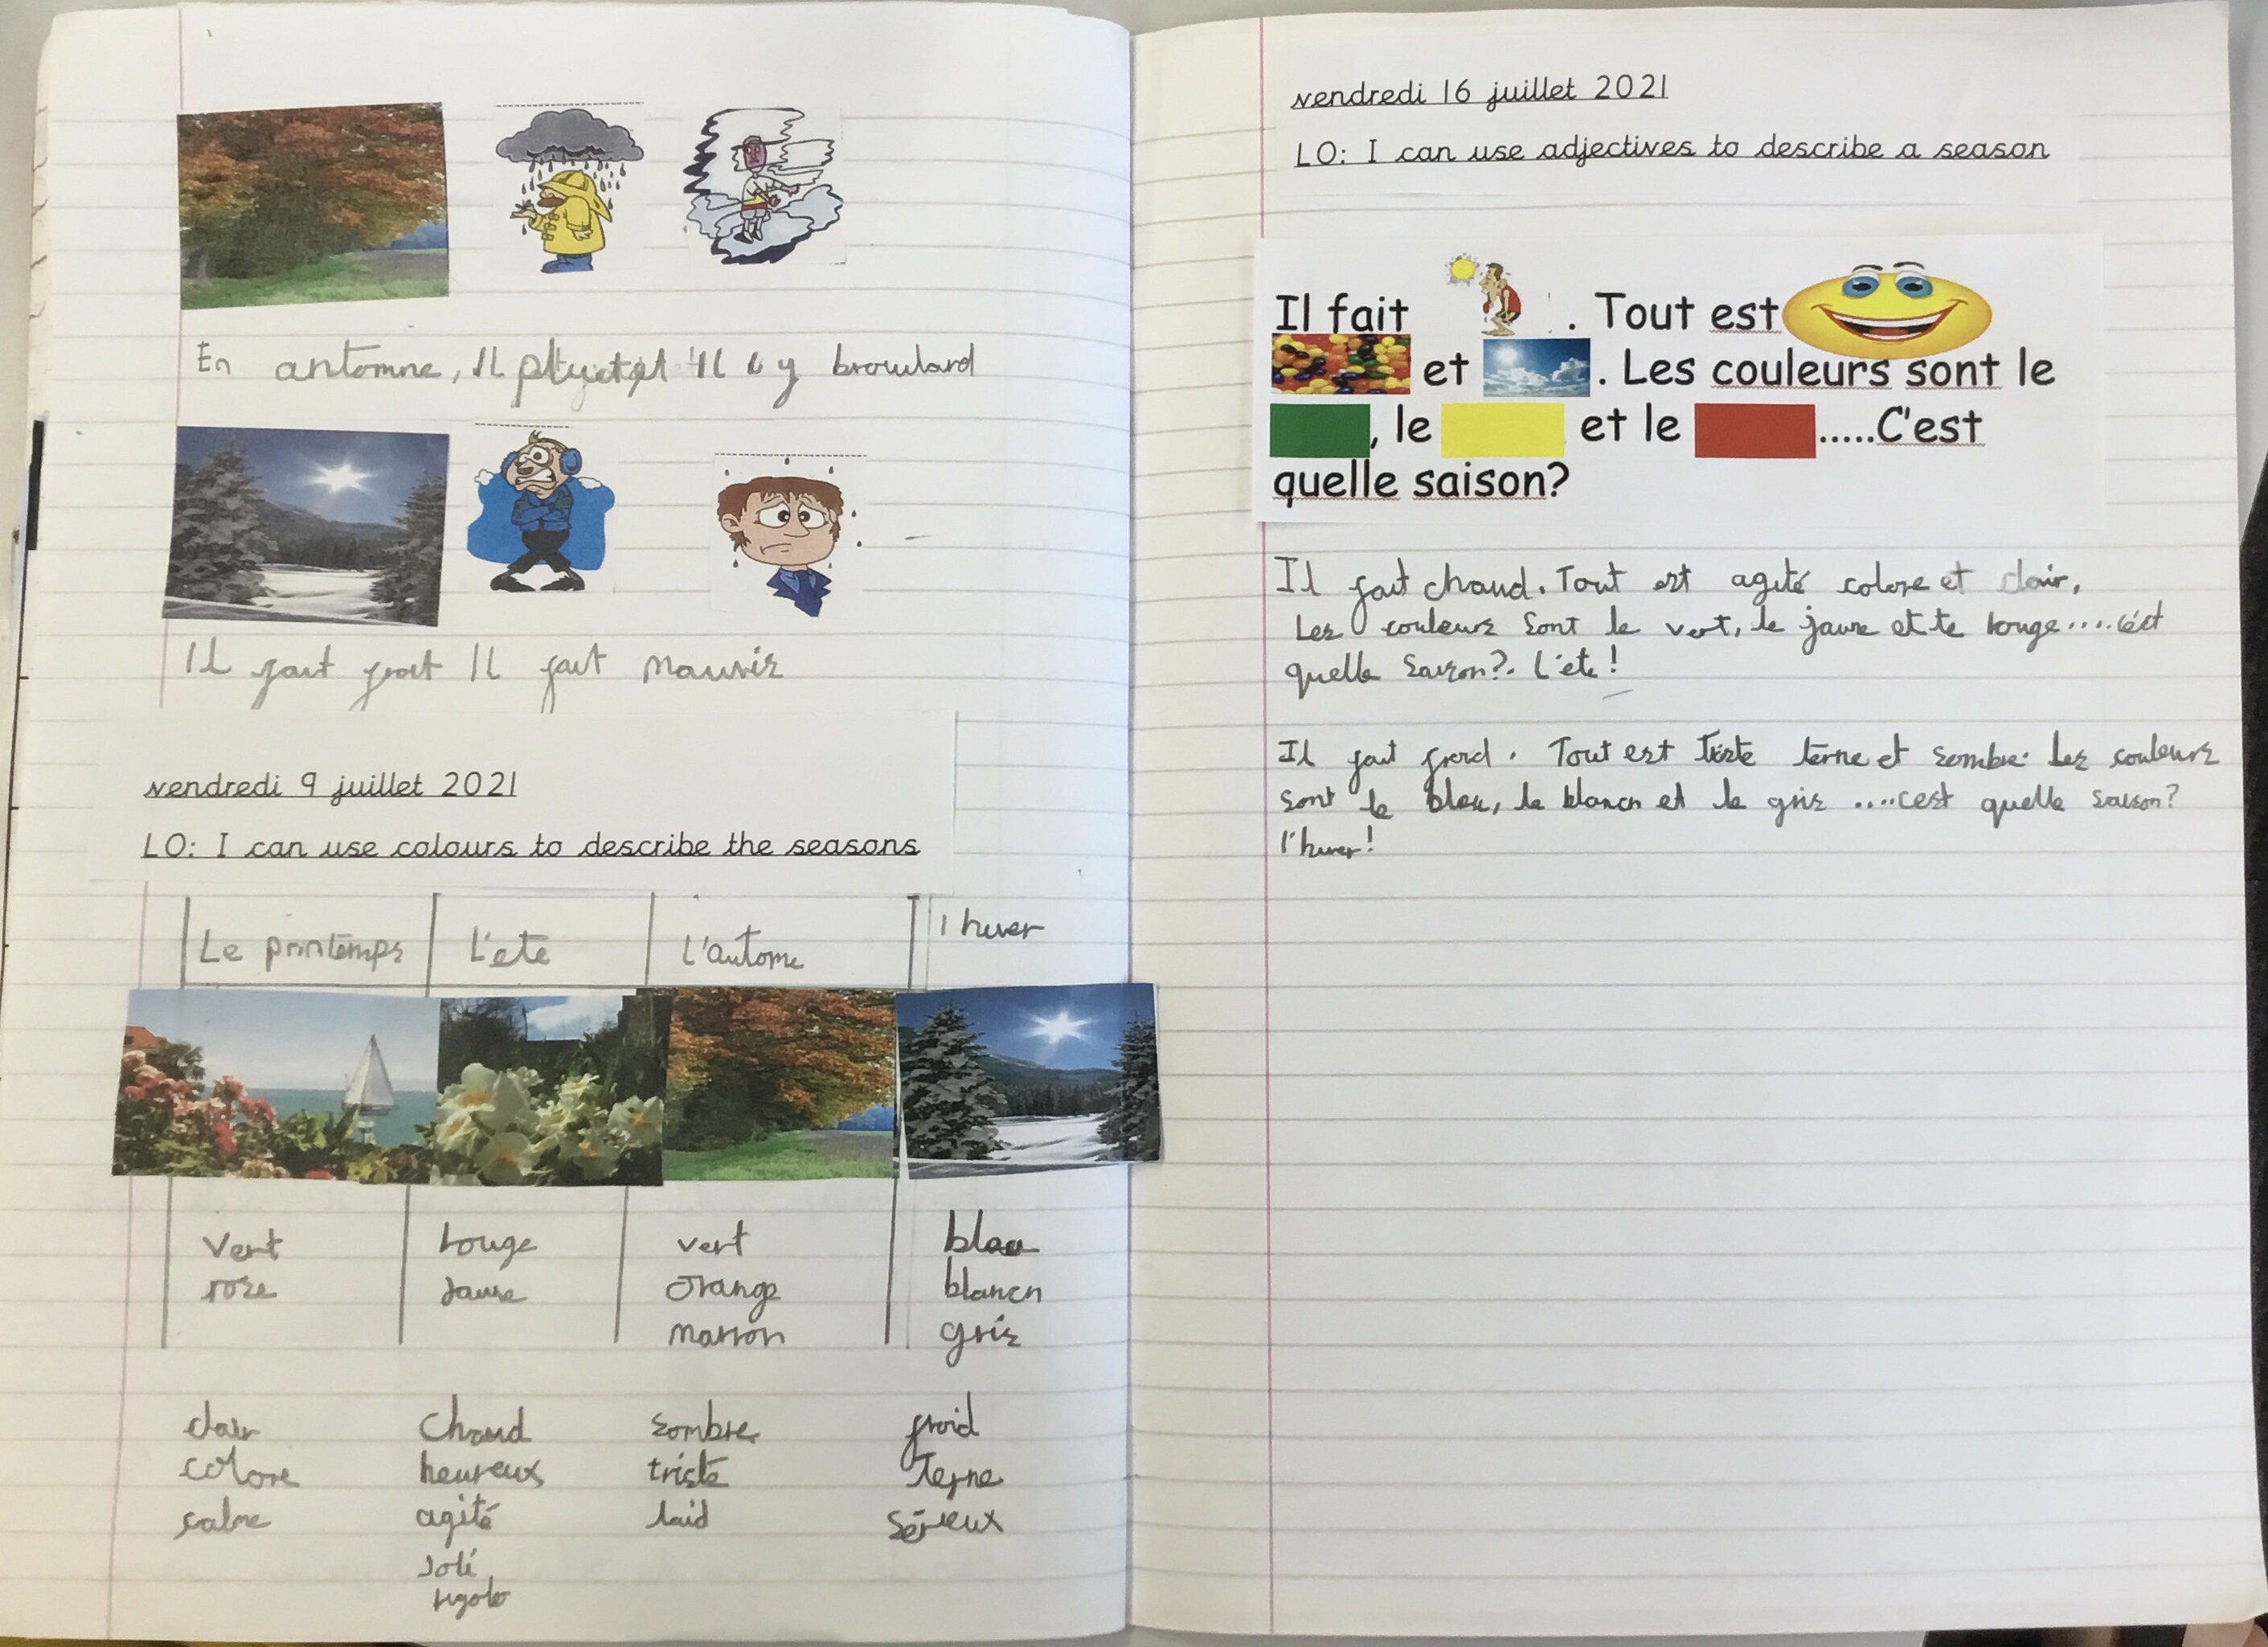 En automne, Il et Il y brouilard
Il fait froit Il fait mauvis
vendredi 9 juillet 2021
LO: I can use colours to describe the seasons
Le printemps L'ete L'automne l'hiver
vert rouge vert bleu
rose Jaune orange blancn
marron gris
clair Chaud sombre froid
colore heureux triste Terne
calme agité laid Sérieux
Joli
rigolo
vendredi 16 juillet 2021
LO: I can use adjectives to describe a season
Il fait . Tout est
et . Les couleurs sont le
, le et le .....C'est
quelle saison?
Il fait chaud. Tout est agité colore et clair,
Les couleurs sont le vert, le jaune et le rouge....c'ést
quelle saison?. L'ete!
Il fait froid. Tout est triste terne et sombre. Les couleurs
sont le bleu, le blancn et le gris ....cest quelle saison?
l'hiver!